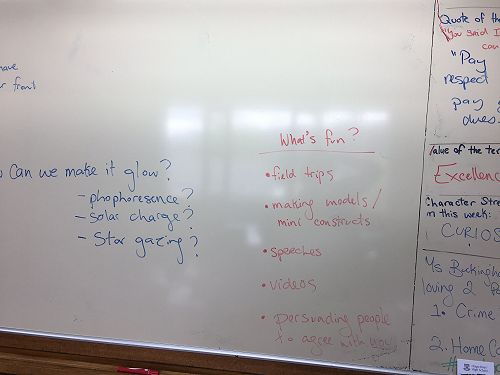 have
r front
Can we make it glow?
- phophoresence?
- solar charge?
- Star gazing?
What's fun?
• field trips
• making models /
mini constructs
• speeches
• videos
• persuading people
to agree with you
Quote of the
"You said I
can
"Pay
respect
pay
dues.
Value of the ter
Excellenc
Character Stre
m this week:
CURIOS
Ms Buckingha
loving 2
1. Crime
2. Home Co